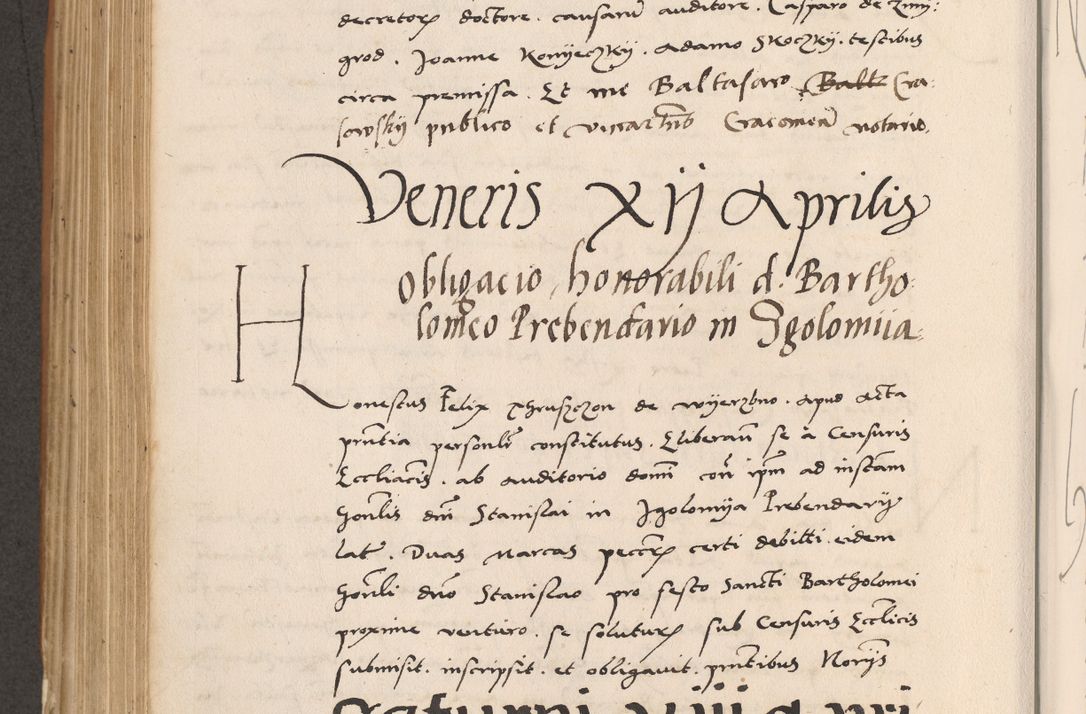 decretorꝝ doctore. causarū auditore. Casparo de Zmij:
grod. Joanne Konyeczky. Adamo Skoczky. testibus
circa premissa. Et me Baltasaro Balt Cra:
sowskÿ publico et
Cracovień notario.
Veneris Xij Aprilis
Obligacio honorabili d. Bartho:
lomeo Prebendario in Igolomiia.
Honestus Felix de wyerzbno. apud Acta
pñtia personlr constitutus. Eliberañ se à Censuris
Eccliacis. ab auditorio domi coñ ipm ad instam
honlis dni Stanislai in Igolomya Prebendarij
lat. Duas Marcas peccrꝝ certi debitti. eidem
honli dno Stanislao pro festo Sancti Bartholomei
proxime venturo. se soluturꝝ sub Censuris Ecclicis
submisit. inscripsit. et obligauit. pñtibus Norijs
Saturni xiii Apri